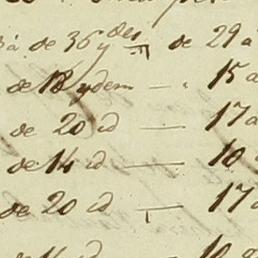 de 36 y des de 29 a
de 18 ydem — . 15 a
de 20 id — 17 a
de 14 id — 10
de 20 id — 17 a